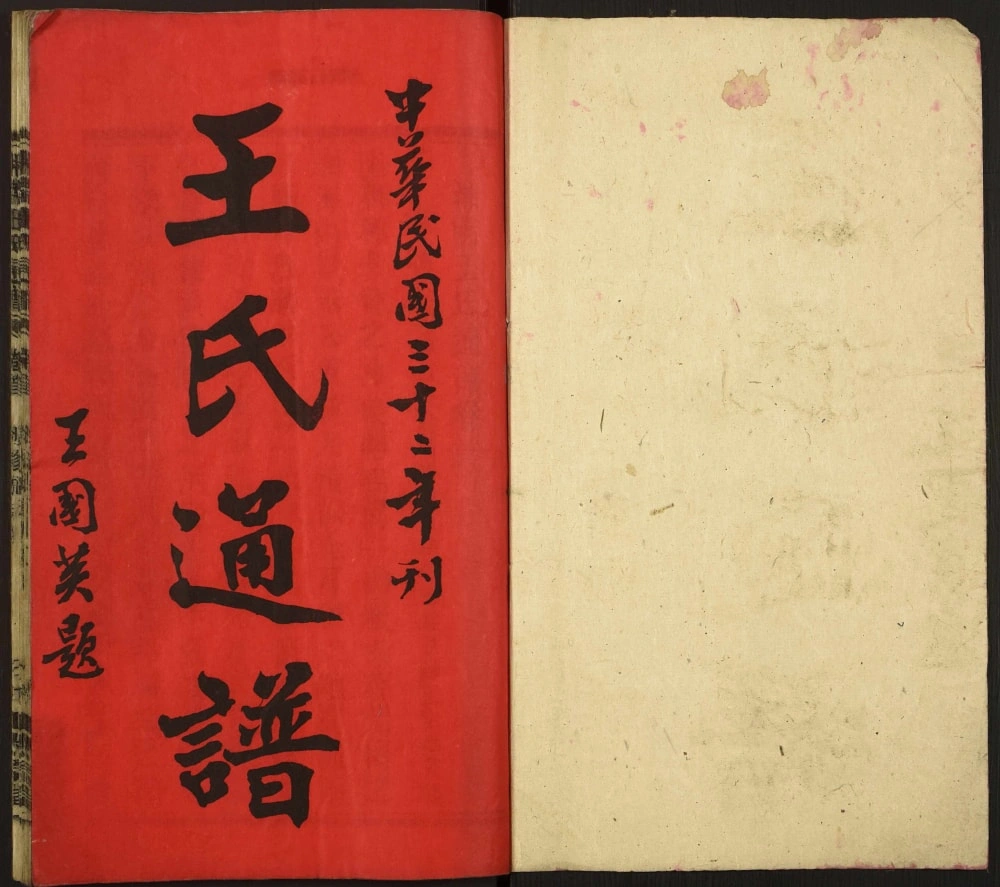 中華民國三十二年刊
王氏通譜
王國英題